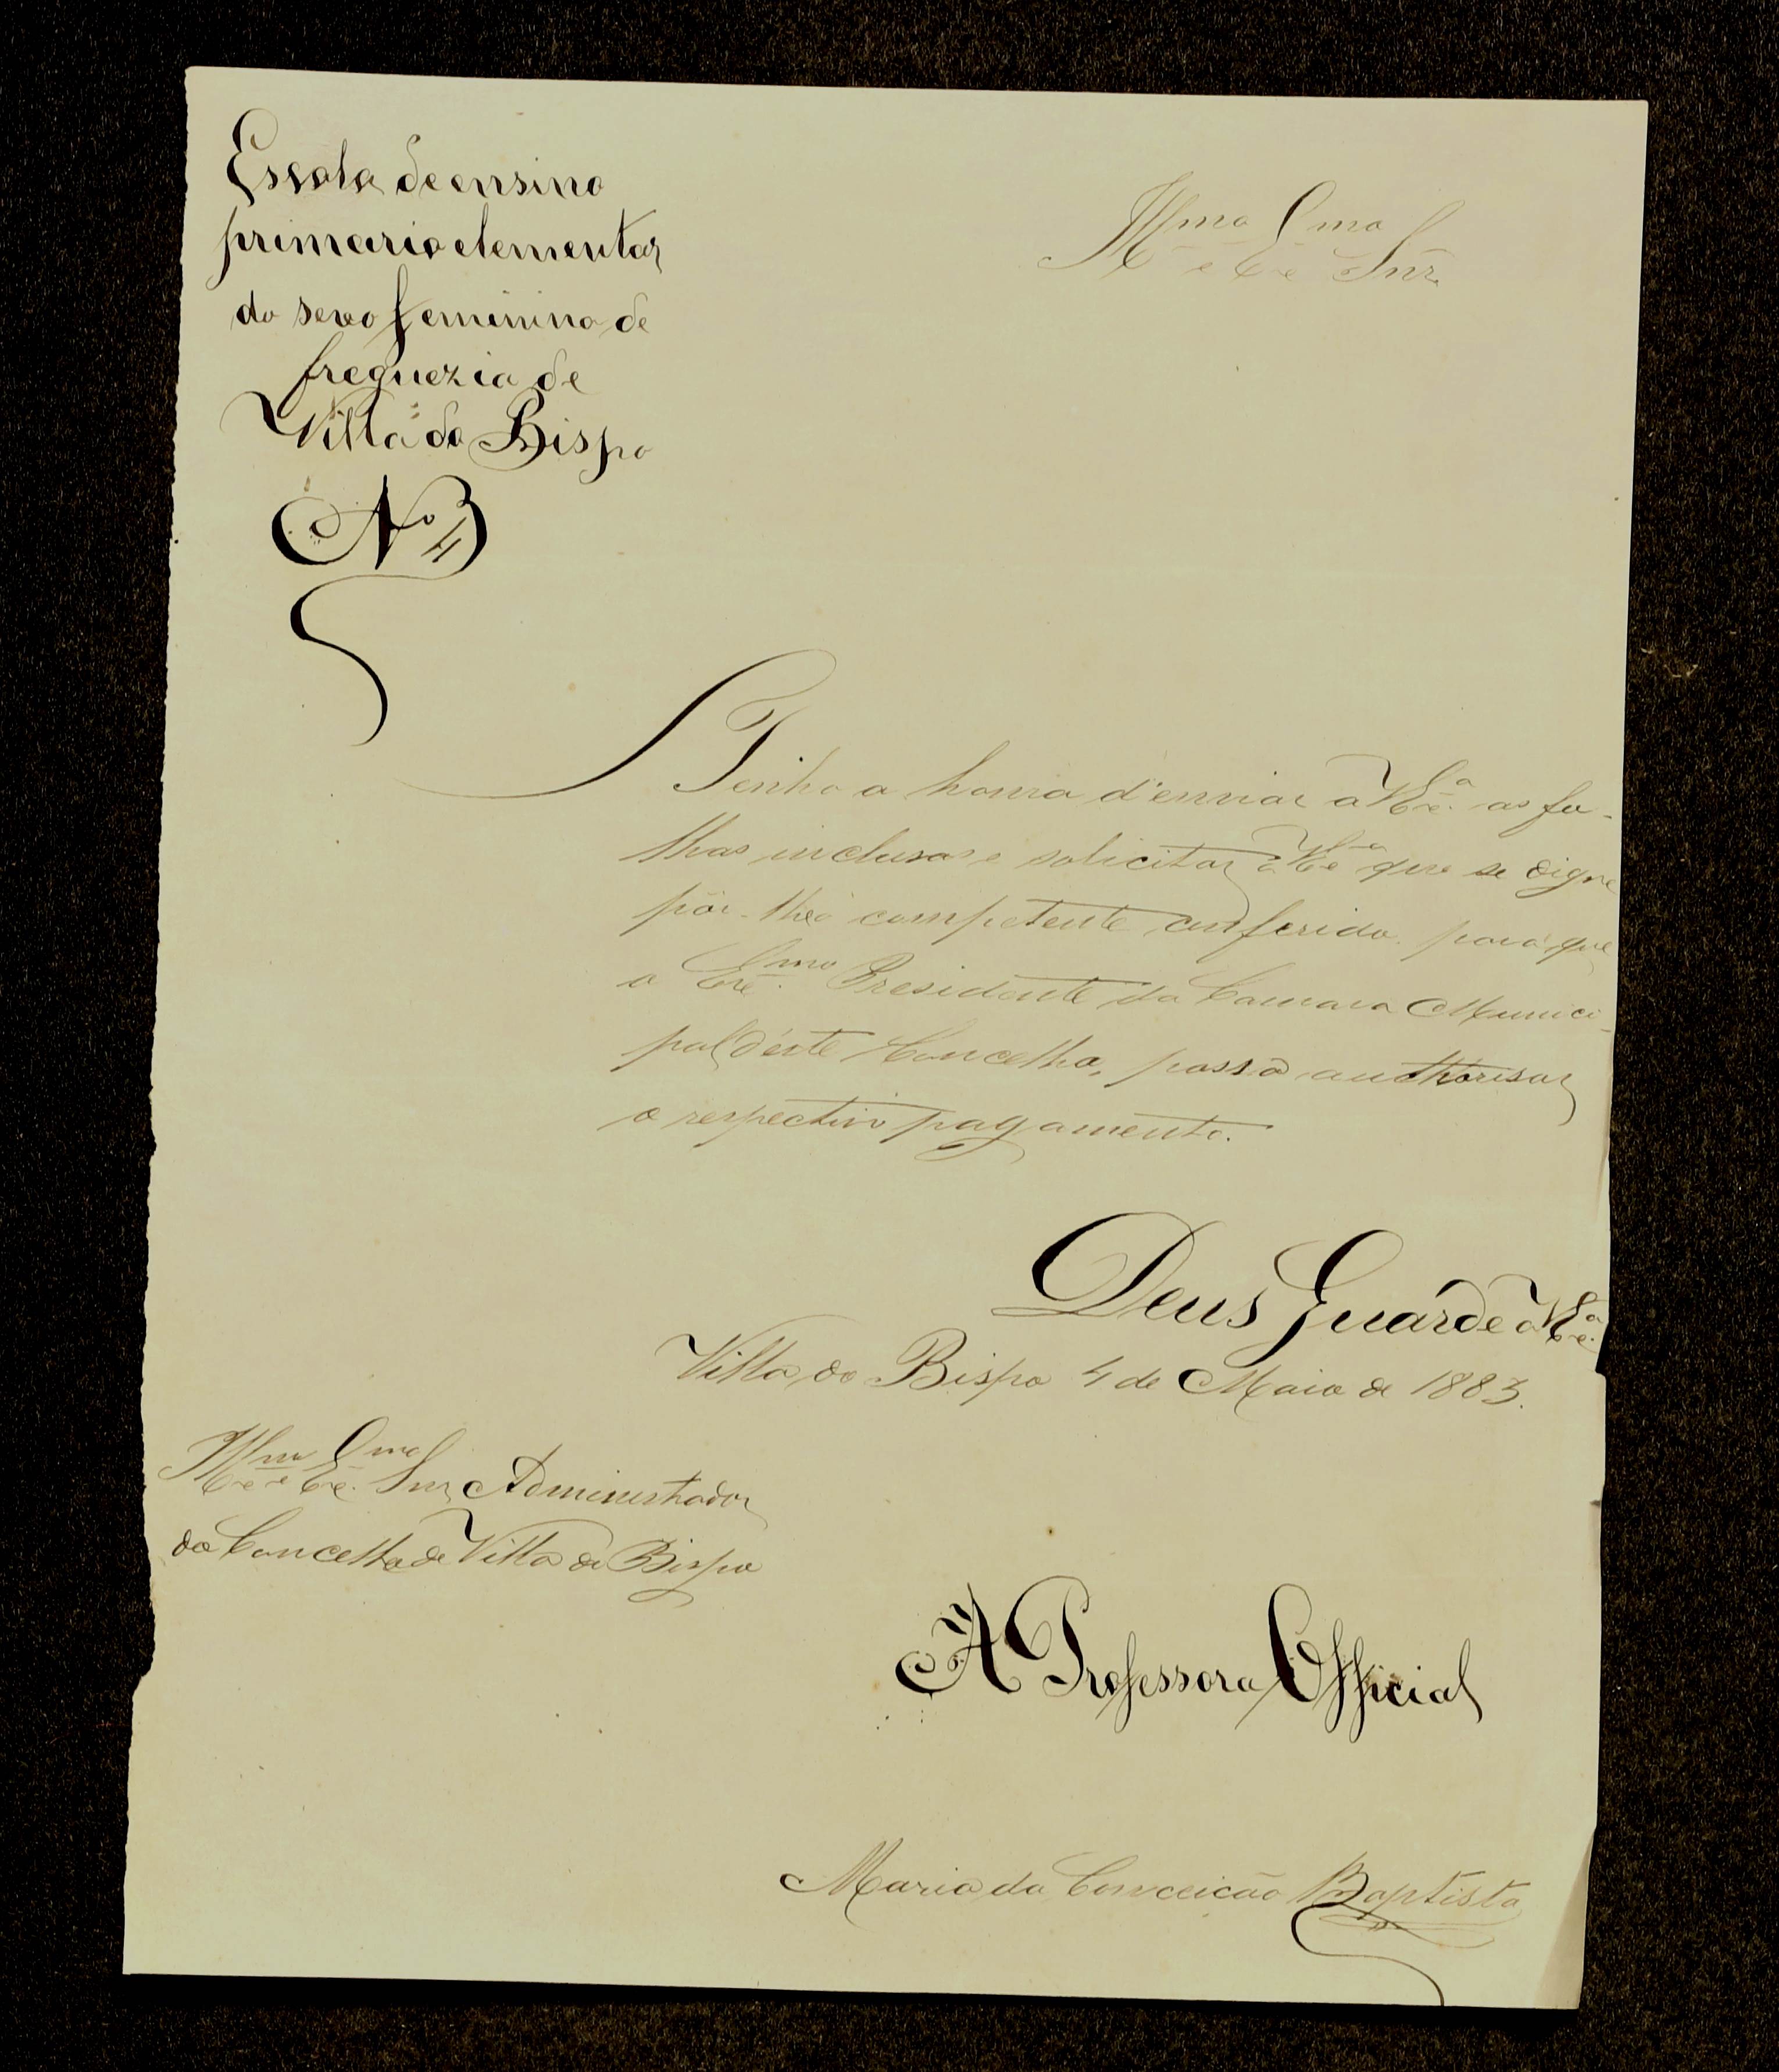 Escola de ensino
primario elementar
do sexo feminino de
freguezia de
Villa do Bispo
Nº 4
Illmo e Exmo Snr.
Tenho a honra d'enviar a V. Exª as fo-
lhas inclusas e solicitar a V. Exª que se digne
pôr-lhe o competente conferido para que
o Exmo Presidente da Camara Munici-
pal d'éste Concelho, possa authorisar
o respectivo pagamento.
Deus Guarde a V. Exª
Villa do Bispo 4 de Maio de 1883.
Illmo e Exmo Snr Administrador
do Concelho de Villa do Bispo
A Professora Official
Maria da Conceição Baptista